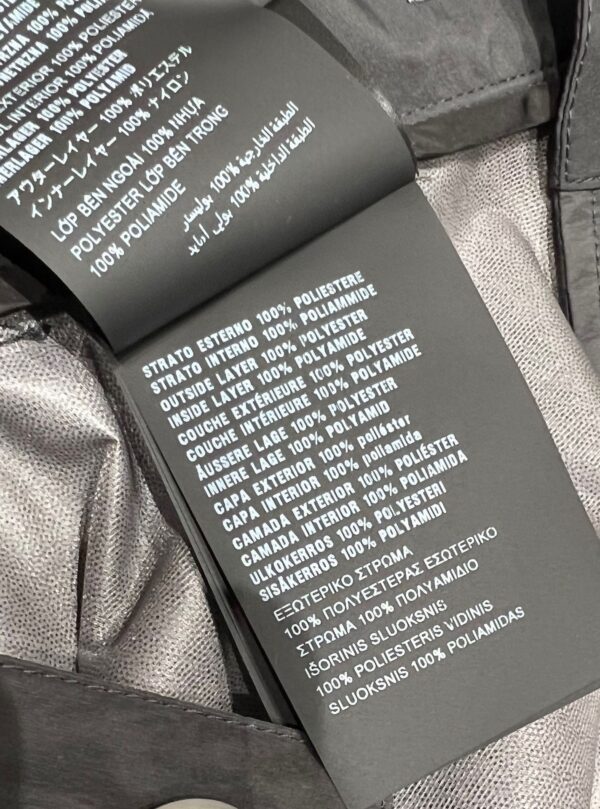 AMIDE
100% POLY
100% POLIAMI
EXTERIOR 100% POLIÉSTER
INTERIOR 100% POLIAMID
LAGEN 100% POLYESTER
ENLAGEN 100% POLYAMID
アウターレイヤー 100% ポリエステル
インナーレイヤー 100% ナイロン
LỚP BÊN NGOÀI 100% NHỰA
POLYESTER LỚP BÊN TRONG
100% POLIAMIDE
الطبقة الخارجية 100% بوليستر
الطبقة الداخلية 100% بولي أمايد
STRATO ESTERNO 100% POLIESTERE
STRATO INTERNO 100% POLIAMMIDE
OUTSIDE LAYER 100% POLYESTER
INSIDE LAYER 100% POLYAMIDE
COUCHE EXTÉRIEURE 100% POLYESTER
COUCHE INTÉRIEURE 100% POLYAMIDE
ÄUSSERE LAGE 100% POLYESTER
INNERE LAGE 100% POLYAMID
CAPA EXTERIOR 100% poliéster
CAPA INTERIOR 100% poliamida
CAMADA EXTERIOR 100% POLIÉSTER
CAMADA INTERIOR 100% POLIAMIDA
ULKOKERROS 100% POLYESTERI
SISÄKERROS 100% POLYAMIDI
ΕΞΩΤΕΡΙΚΟ ΣΤΡΩΜΑ
100% ΠΟΛΥΕΣΤΕΡΑΣ ΕΣΩΤΕΡΙΚΟ
ΣΤΡΩΜΑ 100% ΠΟΛΥΑΜΙΔΙΟ
IŠORINIS SLUOKSNIS
100% POLIESTERIS VIDINIS
SLUOKSNIS 100% POLIAMIDAS